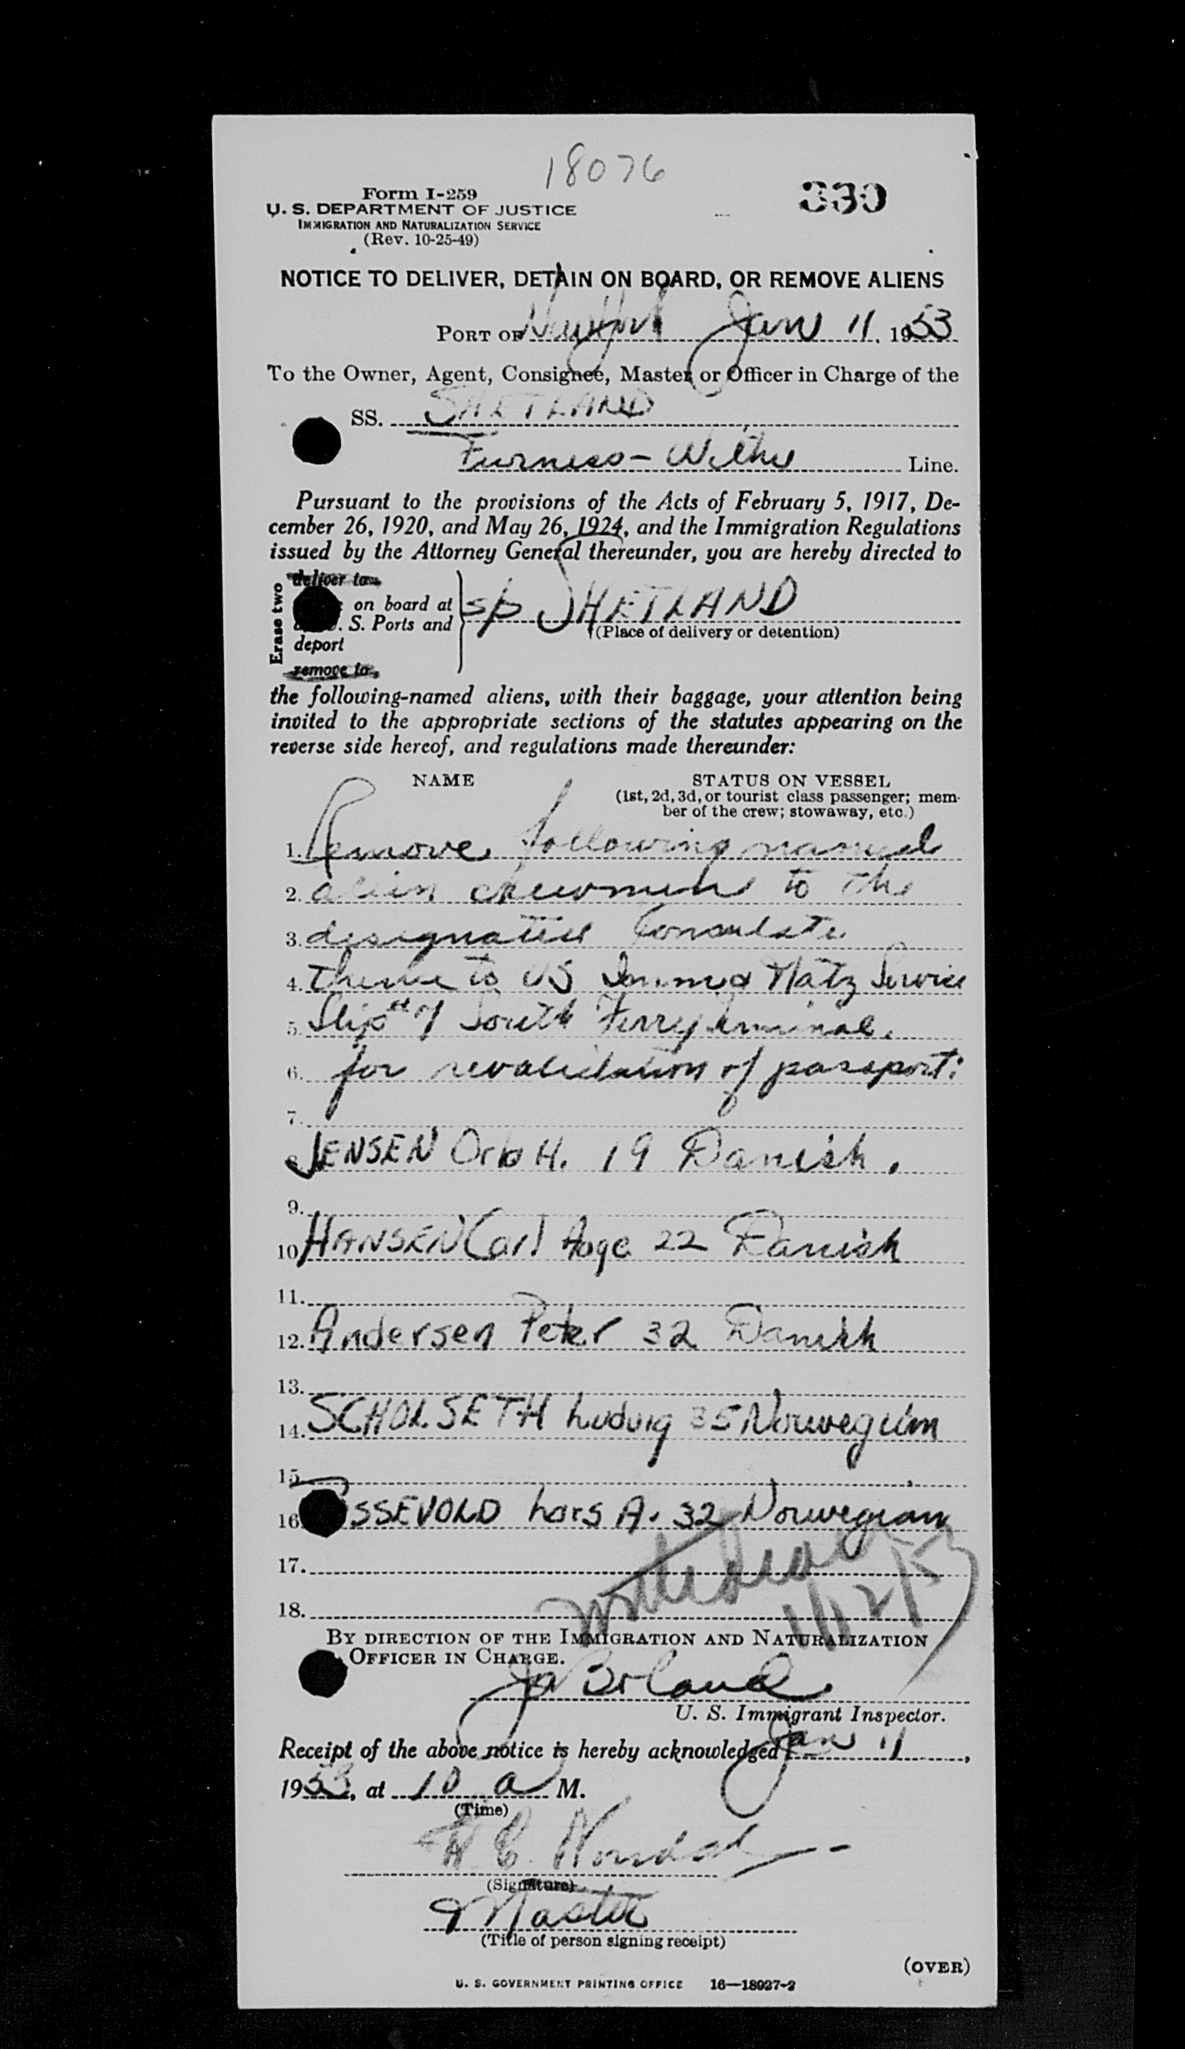 18076
330
Form I-259
U. S. DEPARTMENT OF JUSTICE
IMMIGRATION AND NATURALIZATION SERVICE
(Rev. 10-25-49)
NOTICE TO DELIVER, DETAIN ON BOARD, OR REMOVE ALIENS
PORT OF New York Jan 11, 1953
To the Owner, Agent, Consignee, Master or Officer in Charge of the
SS. SHETLAND
Furness- Withy Line.
Pursuant to the provisions of the Acts of February 5, 1917, De-
cember 26, 1920, and May 26, 1924, and the Immigration Regulations
issued by the Attorney General thereunder, you are hereby directed to
Erase two
deliver to
on board at
S. Ports and
deport
remove to
SHETLAND
(Place of delivery or detention)
the following-named aliens, with their baggage, your attention being
invited to the appropriate sections of the statutes appearing on the
reverse side hereof, and regulations made thereunder:
NAME STATUS ON VESSEL
(1st, 2d, 3d, or tourist class passenger; mem-
ber of the crew; stowaway, etc.)
1. Remove following named
2. alien crewmen to the
3. designated Consulate
4. thence to US Immig Natz Service
5. Slip #7 South Ferry terminal.
6. for revalidation of passport:
7.
JENSEN H. 19 Danish.
9.
10. HANSEN Carl Aage 22 Danish
11.
12. Andersen Peter 32 Danish
13.
14. SCHOLSETH Ludvig 35 Norwegian
15.
16. SSEVOLD Lars A. 32 Norwegian
17.
18.
1/12/53
BY DIRECTION OF THE IMMIGRATION AND NATURALIZATION
OFFICER IN CHARGE.
Boland
U. S. Immigrant Inspector.
Receipt of the above notice is hereby acknowledged Jan 11,
1953, at 10 a M.
(Time)
(Signature)
Master
(Title of person signing receipt)
(OVER)
U. S. GOVERNMENT PRINTING OFFICE 16—18927-2